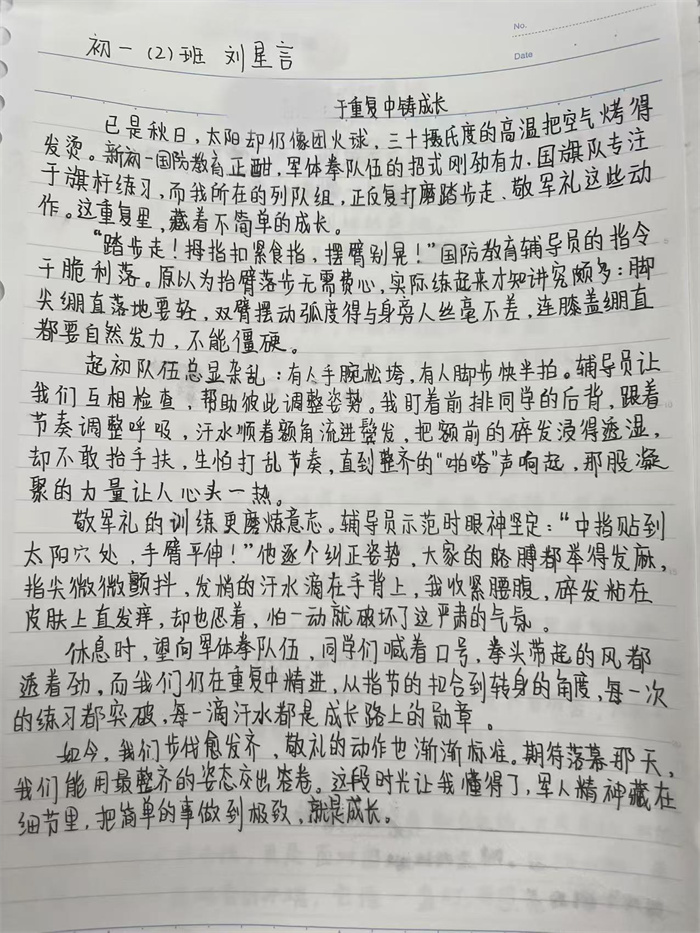 No.
Date
初一(2)班 刘星言
于重复中铸成长
已是秋日，太阳却仍像团火球，三十摄氏度的高温把空气烤得
发烫。新初一国防教育正酣，军体拳队伍的招式刚劲有力，国旗队专注
于旗杆练习，而我所在的列队组，正反复打磨踏步走、敬军礼这些动
作。这重复里，藏着不简单的成长。
“踏步走！拇指扣紧食指，摆臂别晃！”国防教育辅导员的指令
干脆利落。原以为抬臂落步无需费心，实际练起来才知讲究颇多：脚
尖绷直落地要轻，双臂摆动弧度得与身旁人丝毫不差，连膝盖绷直
都要自然发力，不能僵硬。
起初队伍总显杂乱：有人手腕松垮，有人脚步快半拍。辅导员让
我们互相检查，帮助彼此调整姿势。我盯着前排同学的后背，跟着
节奏调整呼吸，汗水顺着额角流进鬓发，把额前的碎发浸得透湿，
却不敢抬手扶，生怕打乱节奏，直到整齐的“啪嗒”声响起，那股凝
聚的力量让人心头一热。
敬军礼的训练更磨炼意志。辅导员示范时眼神坚定：“中指贴到
太阳穴处，手臂平伸！”他逐个纠正姿势，大家的胳膊都举得发麻，
指尖微微颤抖，发梢的汗水滴在手背上，我收紧腰腹，碎发粘在
皮肤上直发痒，却也忍着，怕一动就破坏了这严肃的气氛。
休息时，望向军体拳队伍，同学们喊着口号，拳头带起的风都
透着劲，而我们仍在重复中精进，从指节的扣合到转身的角度，每一次
的练习都突破，每一滴汗水都是成长路上的勋章。
如今，我们步伐愈发齐，敬礼的动作也渐渐标准。期待落幕那天，
我们能用最整齐的姿态交出答卷。这段时光让我懂得了，军人精神藏在
细节里，把简单的事做到极致，就是成长。